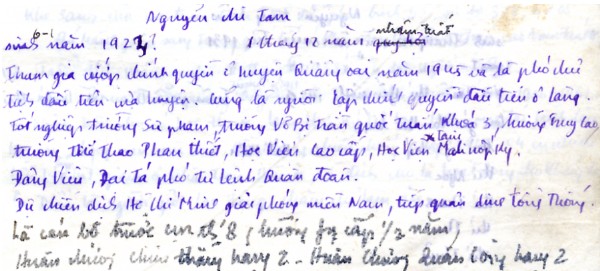 Nguyễn chí Tam
6-1
sinh năm 1927 1 tháng 12 năm nhâm tuất
Tham gia cướp chính quyền ở huyện Quảng năm 1945 và là phó chủ
tịch đầu tiên của huyện. cũng là người lập chính quyền đầu tiên ở làng.
Tốt nghiệp trường Sư phạm, trường Võ Bị trần quốc tuấn Khoá 3, trường Trung cao
trường Thể Thao Phan Thiết, Học Viện cao cấp, Học Viện
Đảng Viên, Đại tá phó tư lệnh Quân đoàn.
Dự chiến dịch Hồ Chí Minh giải phóng miền Nam, tiếp quản dinh tổng Thống.
Là cán bộ trước cm th 8, hưởng cấp 1/2 năm
Huân chương chiến thắng hạng 2 - Huân chương Quân công hạng 2